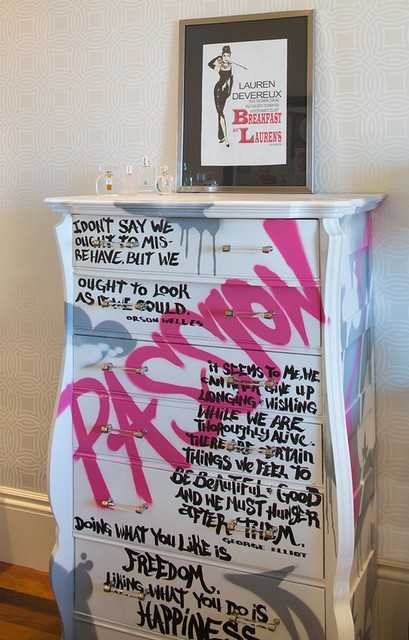 LAUREN
DEVEREUX
BREAKFAST
AT LAUREN'S
IDON'T SAY WE
OUGHT TO MIS-
BEHAVE. BUT WE
OUGHT TO LOOK
AS IF WE COULD.
ORSON WELLES
PASSION
IT SEEMS TO ME, WE
CAN NEVER GIVE UP
LONGING + WISHING
WHILE WE ARE
THOROUGHLY ALIVE.
THERE ARE CERTAIN
THINGS WE FEEL TO
BE BEAUTIFUL + GOOD
AND WE MUST HUNGER
AFTER THEM.
GEORGE ELLIOT
DOING WHAT YOU LIKE IS
FREEDOM.
LIKING WHAT YOU DO IS
HAPPINESS